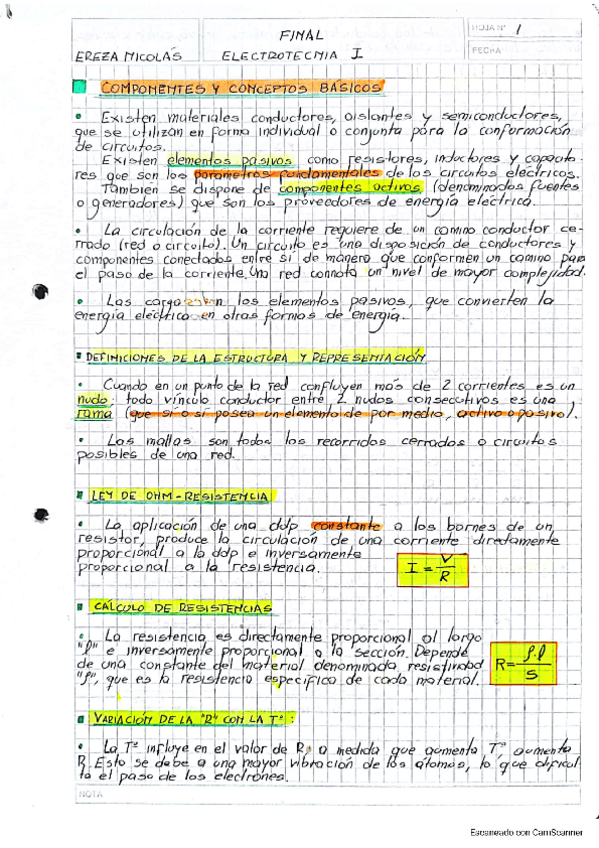 FINAL
HOJA Nº 1
EREZA NICOLÁS
ELECTROTECNIA I
FECHA
COMPONENTES Y CONCEPTOS BÁSICOS
• Existen materiales conductores, aislantes y semiconductores,
que se utilizan en forma individual o conjunta para la conformación
de circuitos.
Existen elementos pasivos como resistores, inductores y capacito-
res que son los parámetros fundamentales de los circuitos eléctricos.
También se dispone de componentes activos (denominados fuentes
o generadores) que son los proveedores de energía eléctrica.
• La circulación de la corriente requiere de un camino conductor ce-
rrado (red o circuito). Un circuito es una disposición de conductores y
componentes conectados entre sí de manera que conformen un camino para
el paso de la corriente. Una red connota un nivel de mayor complejidad.
• Las cargas son los elementos pasivos, que convierten la
energía eléctrica en otras formas de energía.
DEFINICIONES DE LA ESTRUCTURA Y REPRESENTACIÓN
• Cuando en un punto de la red confluyen más de 2 corrientes es un
nudo; todo vínculo conductor entre 2 nudos consecutivos es una
rama (que sí o sí posea un elemento de por medio, activo o pasivo).
• Las mallas son todos los recorridos cerrados o circuitos
posibles de una red.
LEY DE OHM - RESISTENCIA
• La aplicación de una ddp constante a los bornes de un
resistor, produce la circulación de una corriente directamente
proporcional a la ddp e inversamente
proporcional a la resistencia.
I = V/R
CÁLCULO DE RESISTENCIAS
• La resistencia es directamente proporcional al largo
"l" e inversamente proporcional a la sección. Depende
de una constante del material denominada resistividad
"ρ", que es la resistencia específica de cada material.
R = ρ.l/S
VARIACIÓN DE LA "R" CON LA Tº:
• La Tº influye en el valor de R; a medida que aumenta Tº aumenta
R. Esto se debe a una mayor vibración de los átomos, lo que dificul-
ta el paso de los electrones.
NOTA
Escaneado con CamScanner